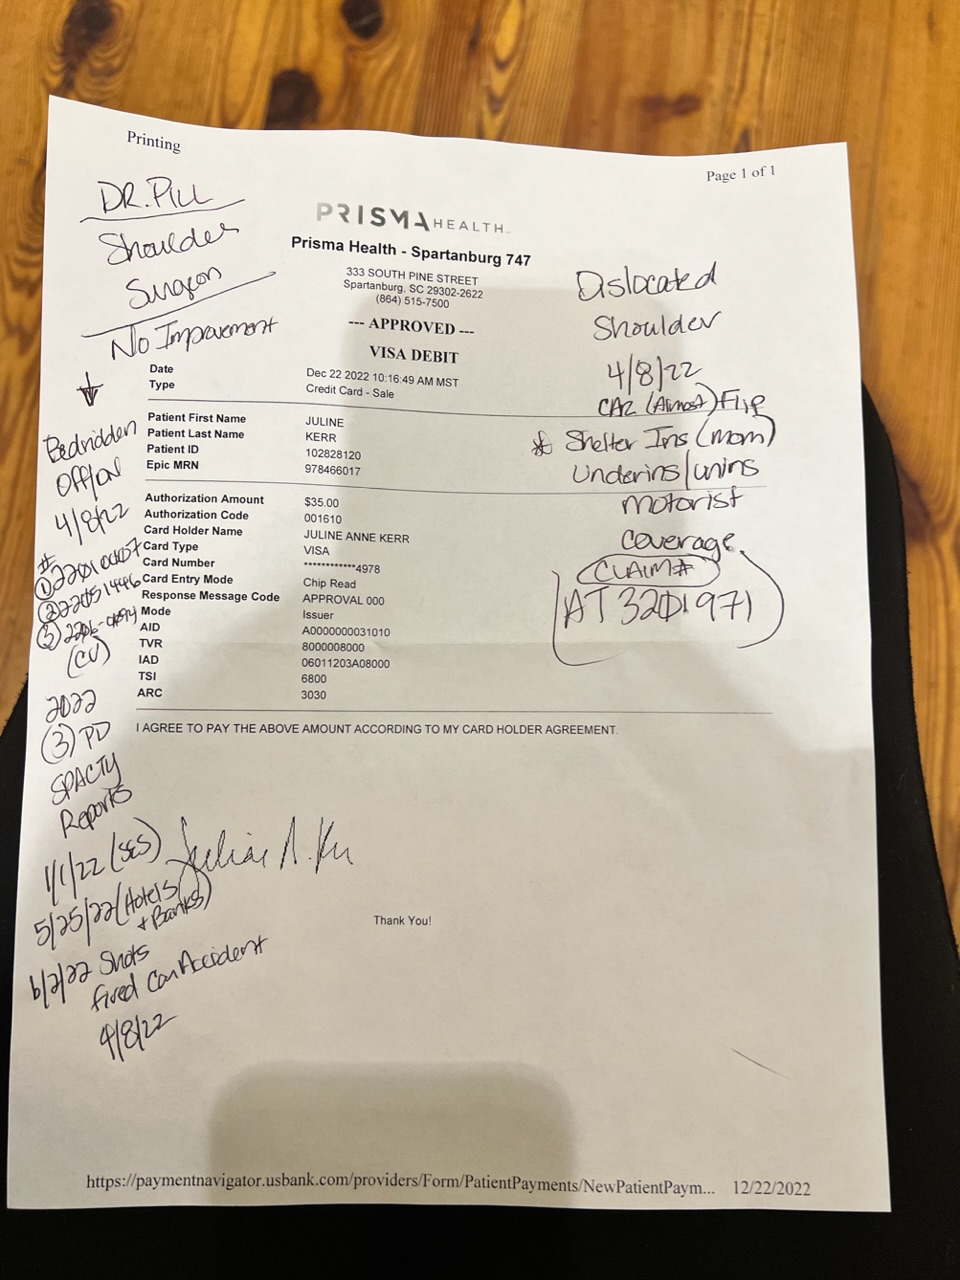 Printing
Page 1 of 1
PRISMA HEALTH
Prisma Health - Spartanburg 747
333 SOUTH PINE STREET
Spartanburg, SC 29302-2622
(864) 515-7500
--- APPROVED ---
VISA DEBIT
Date Dec 22 2022 10:16:49 AM MST
Type Credit Card - Sale
Patient First Name JULINE
Patient Last Name KERR
Patient ID 102828120
Epic MRN 978466017
Authorization Amount $35.00
Authorization Code 001610
Card Holder Name JULINE ANNE KERR
Card Type VISA
Card Number ************4978
Card Entry Mode Chip Read
Response Message Code APPROVAL 000
Mode Issuer
AID A0000000031010
TVR 8000008000
IAD 06011203A08000
TSI 6800
ARC 3030
I AGREE TO PAY THE ABOVE AMOUNT ACCORDING TO MY CARD HOLDER AGREEMENT.
Thank You!
DR. PILL
Shoulder
Surgeon
No Improvement
Bedridden
Off/on
4/8/22
#
① 22010407
② 22051446
③
(CV)
2022
(3) PD
SPACTY
Reports
1/1/22 (SES)
5/25/22 (Hotels
+ Banks)
6/2/22 Shots
fired Car Accident
4/8/22
Dislocated
Shoulder
4/8/22
CAR (Almost) Flip
* Shelter Ins (mom)
Underins/unins
motorist
coverage
CLAIM#
AT3201971
https://paymentnavigator.usbank.com/providers/Form/PatientPayments/NewPatientPaym... 12/22/2022